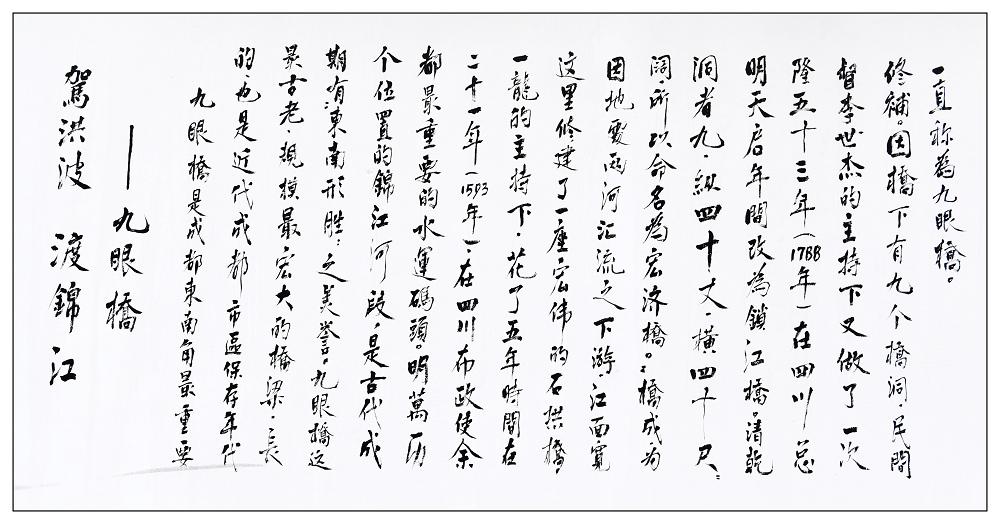 駕洪波 渡錦江
——九眼橋
九眼橋是成都東南角最重要
的,也是近代成都市區保存年代
最古老、規模最宏大的橋梁,長
期有"東南形胜"之美誉。九眼橋这
个位置的錦江河段,是古代成
都最重要的水運碼頭。明萬历
二十一年(1593年),在四川布政使余
一龍的主持下,花了五年時間在
这里修建了一座宏伟的石拱橋,
因地處兩河汇流之下游,江面寬
闊,所以命名為宏济橋。"橋成为
洞者九,纵四十丈,橫四十尺。"
明天启年間改為鎖江橋。清乾
隆五十三年(1788年)在四川总
督李世杰的主持下又做了一次
修補。因橋下有九个橋洞,民間
一直称為九眼橋。